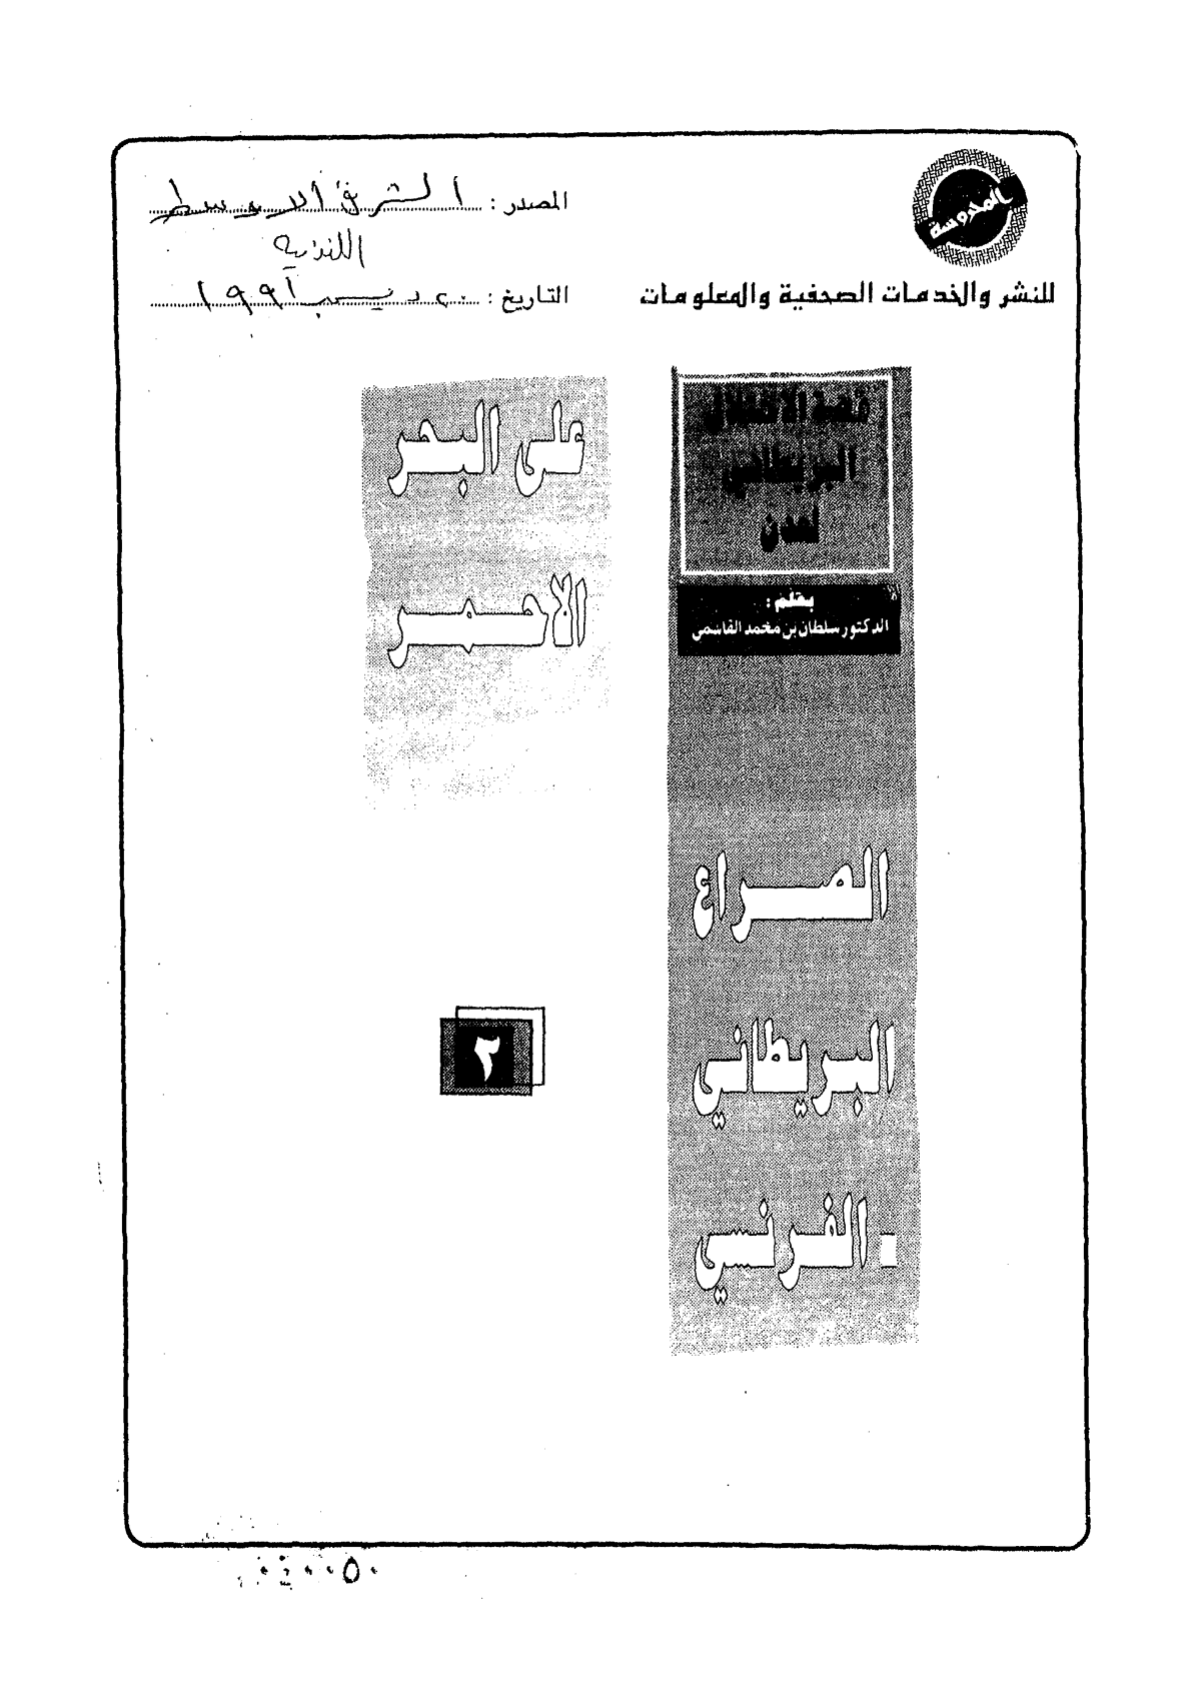 المحروسة
للنشر والخدمات الصحفية والمعلومات
المصدر : الشرق الاوسط
اللندنية
التاريخ : ٢٠ ديسمبر ١٩٩١
قصة الاحتلال
البريطاني
لعدن
بقلم :
الدكتور سلطان بن محمد القاسمي
الصراع
البريطاني
- الفرنسي
على البحر
الاحمر
٢